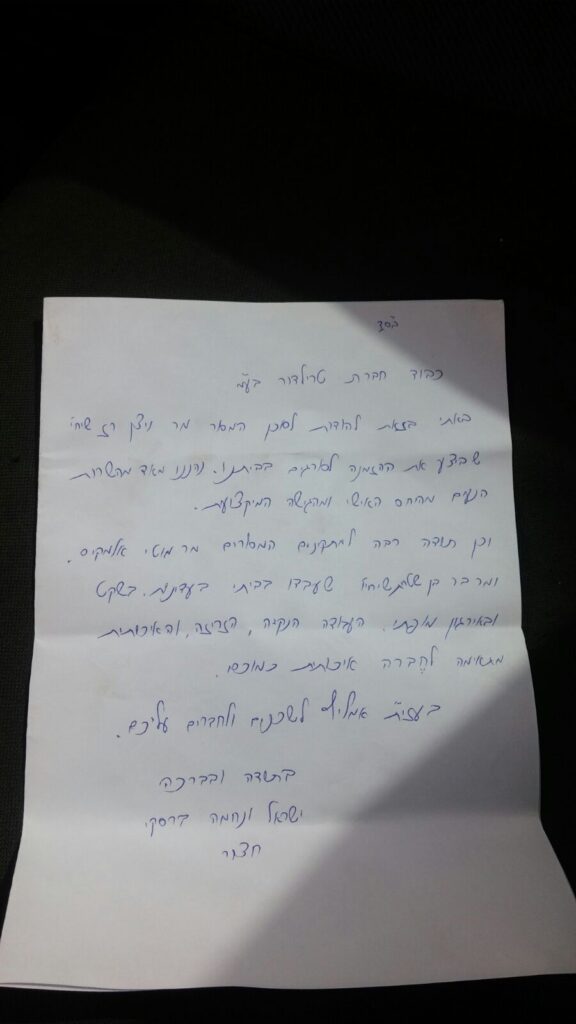 בסד
כבוד חברת טרילדור בע"מ
באתי בזאת להודות לסוכן המסור מר ניצן רז שיחי'
שבצע את ההזמנה לסורגים בביתנו. נהננו מאד מהשרות
הנעים מהיחס האישי ומהגישה המיקצועית.
וכן תודה רבה למתקינים המסורים מר מוטי אלמקיס.
ומר בר בן שיחי' שעבדו בביתי בעדינות. בשקט
ובאירגון מופתי. העבודה הנקיה, הזריזה, והאיכותית
מתאימה לחֶברה איכותית כמוכם.
בעזי"ת אמליץ לשכנים ולחברים עליכם.
בתודה ובברכה
ישראל ונחמה ברסקי
חצור